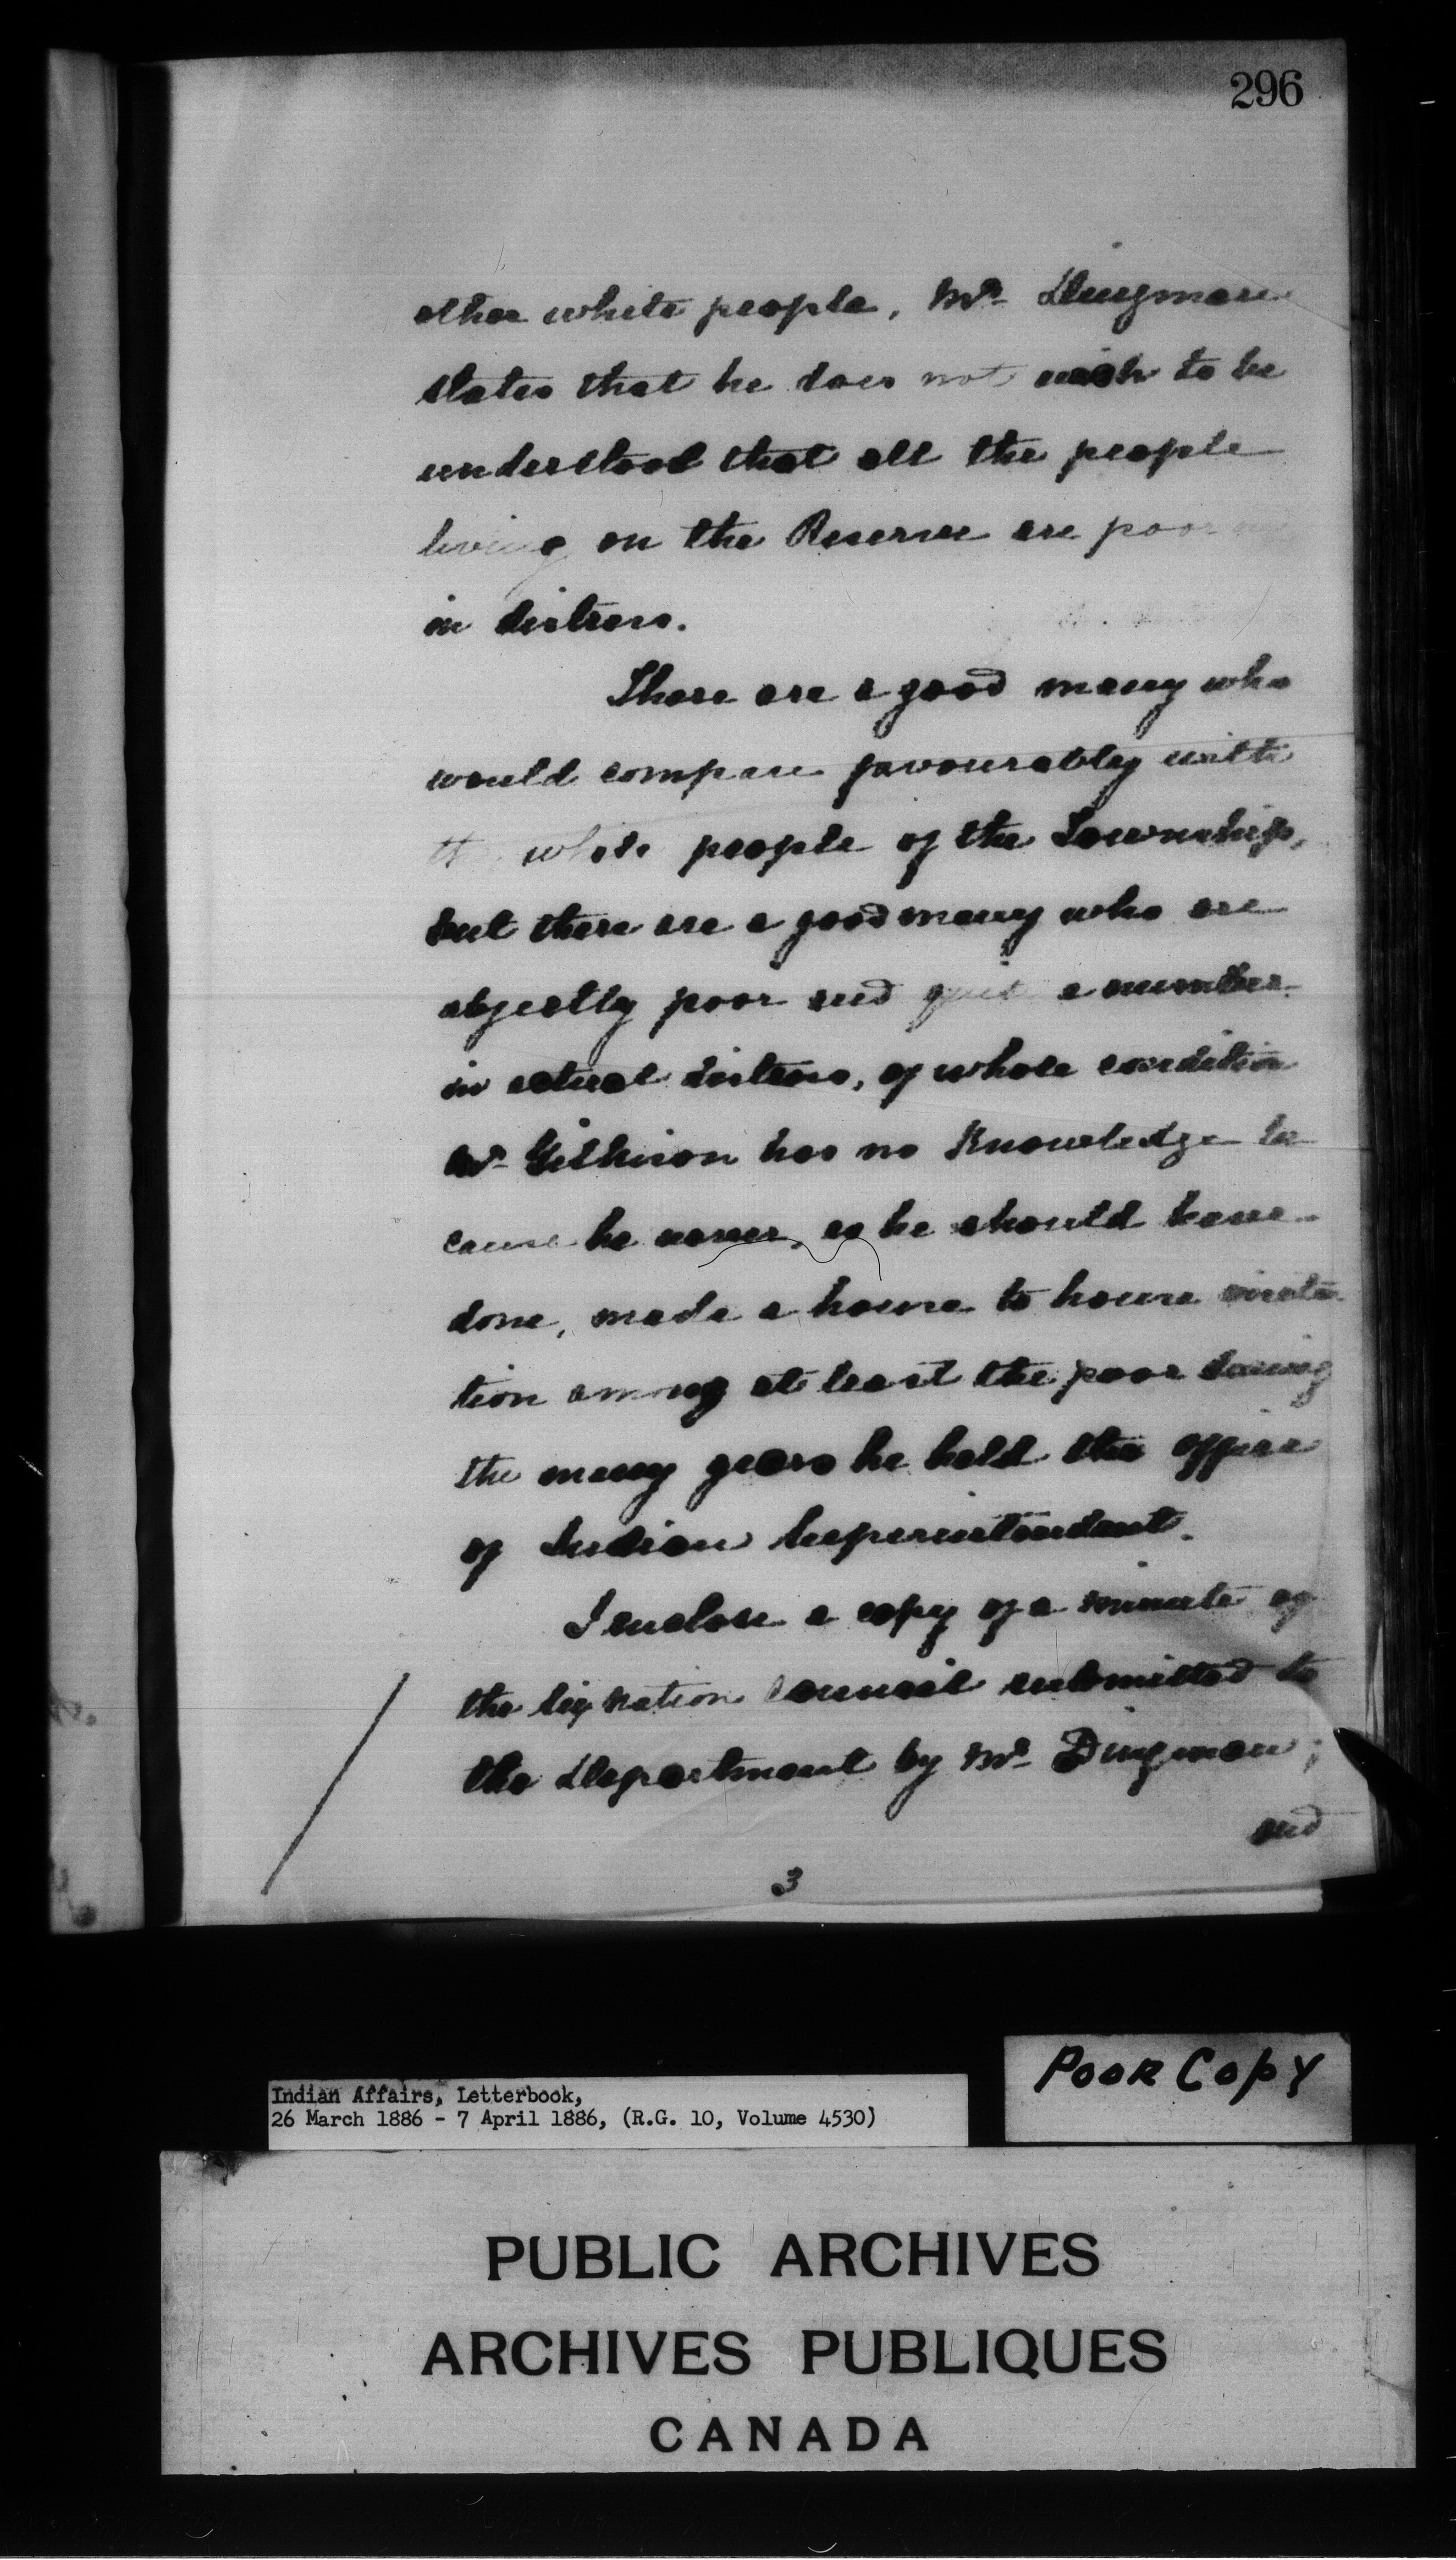 296
other white people, Mr Dingman
states that he does not wish to be
understood that all the people
living on the Reserve are poor and
in distress.
There are a good many who
would compare favourably with
the white people of the Township,
but there are a good many who are
abjectly poor and quite a number
in actual distress, of whose condition
Mr Gilkison has no knowledge be
cause he never, as he should have
done, made a house to house visita-
tion among at least the poor during
the many years he held the office
of Indian Superintendent.
I enclose a copy of a minute of
the Six Nation Council submitted to
the Department by Mr Dingman;
and
3
Indian Affairs, Letterbook,
26 March 1886 - 7 April 1886, (R.G. 10, Volume 4530)
POOR COPY
PUBLIC ARCHIVES
ARCHIVES PUBLIQUES
CANADA